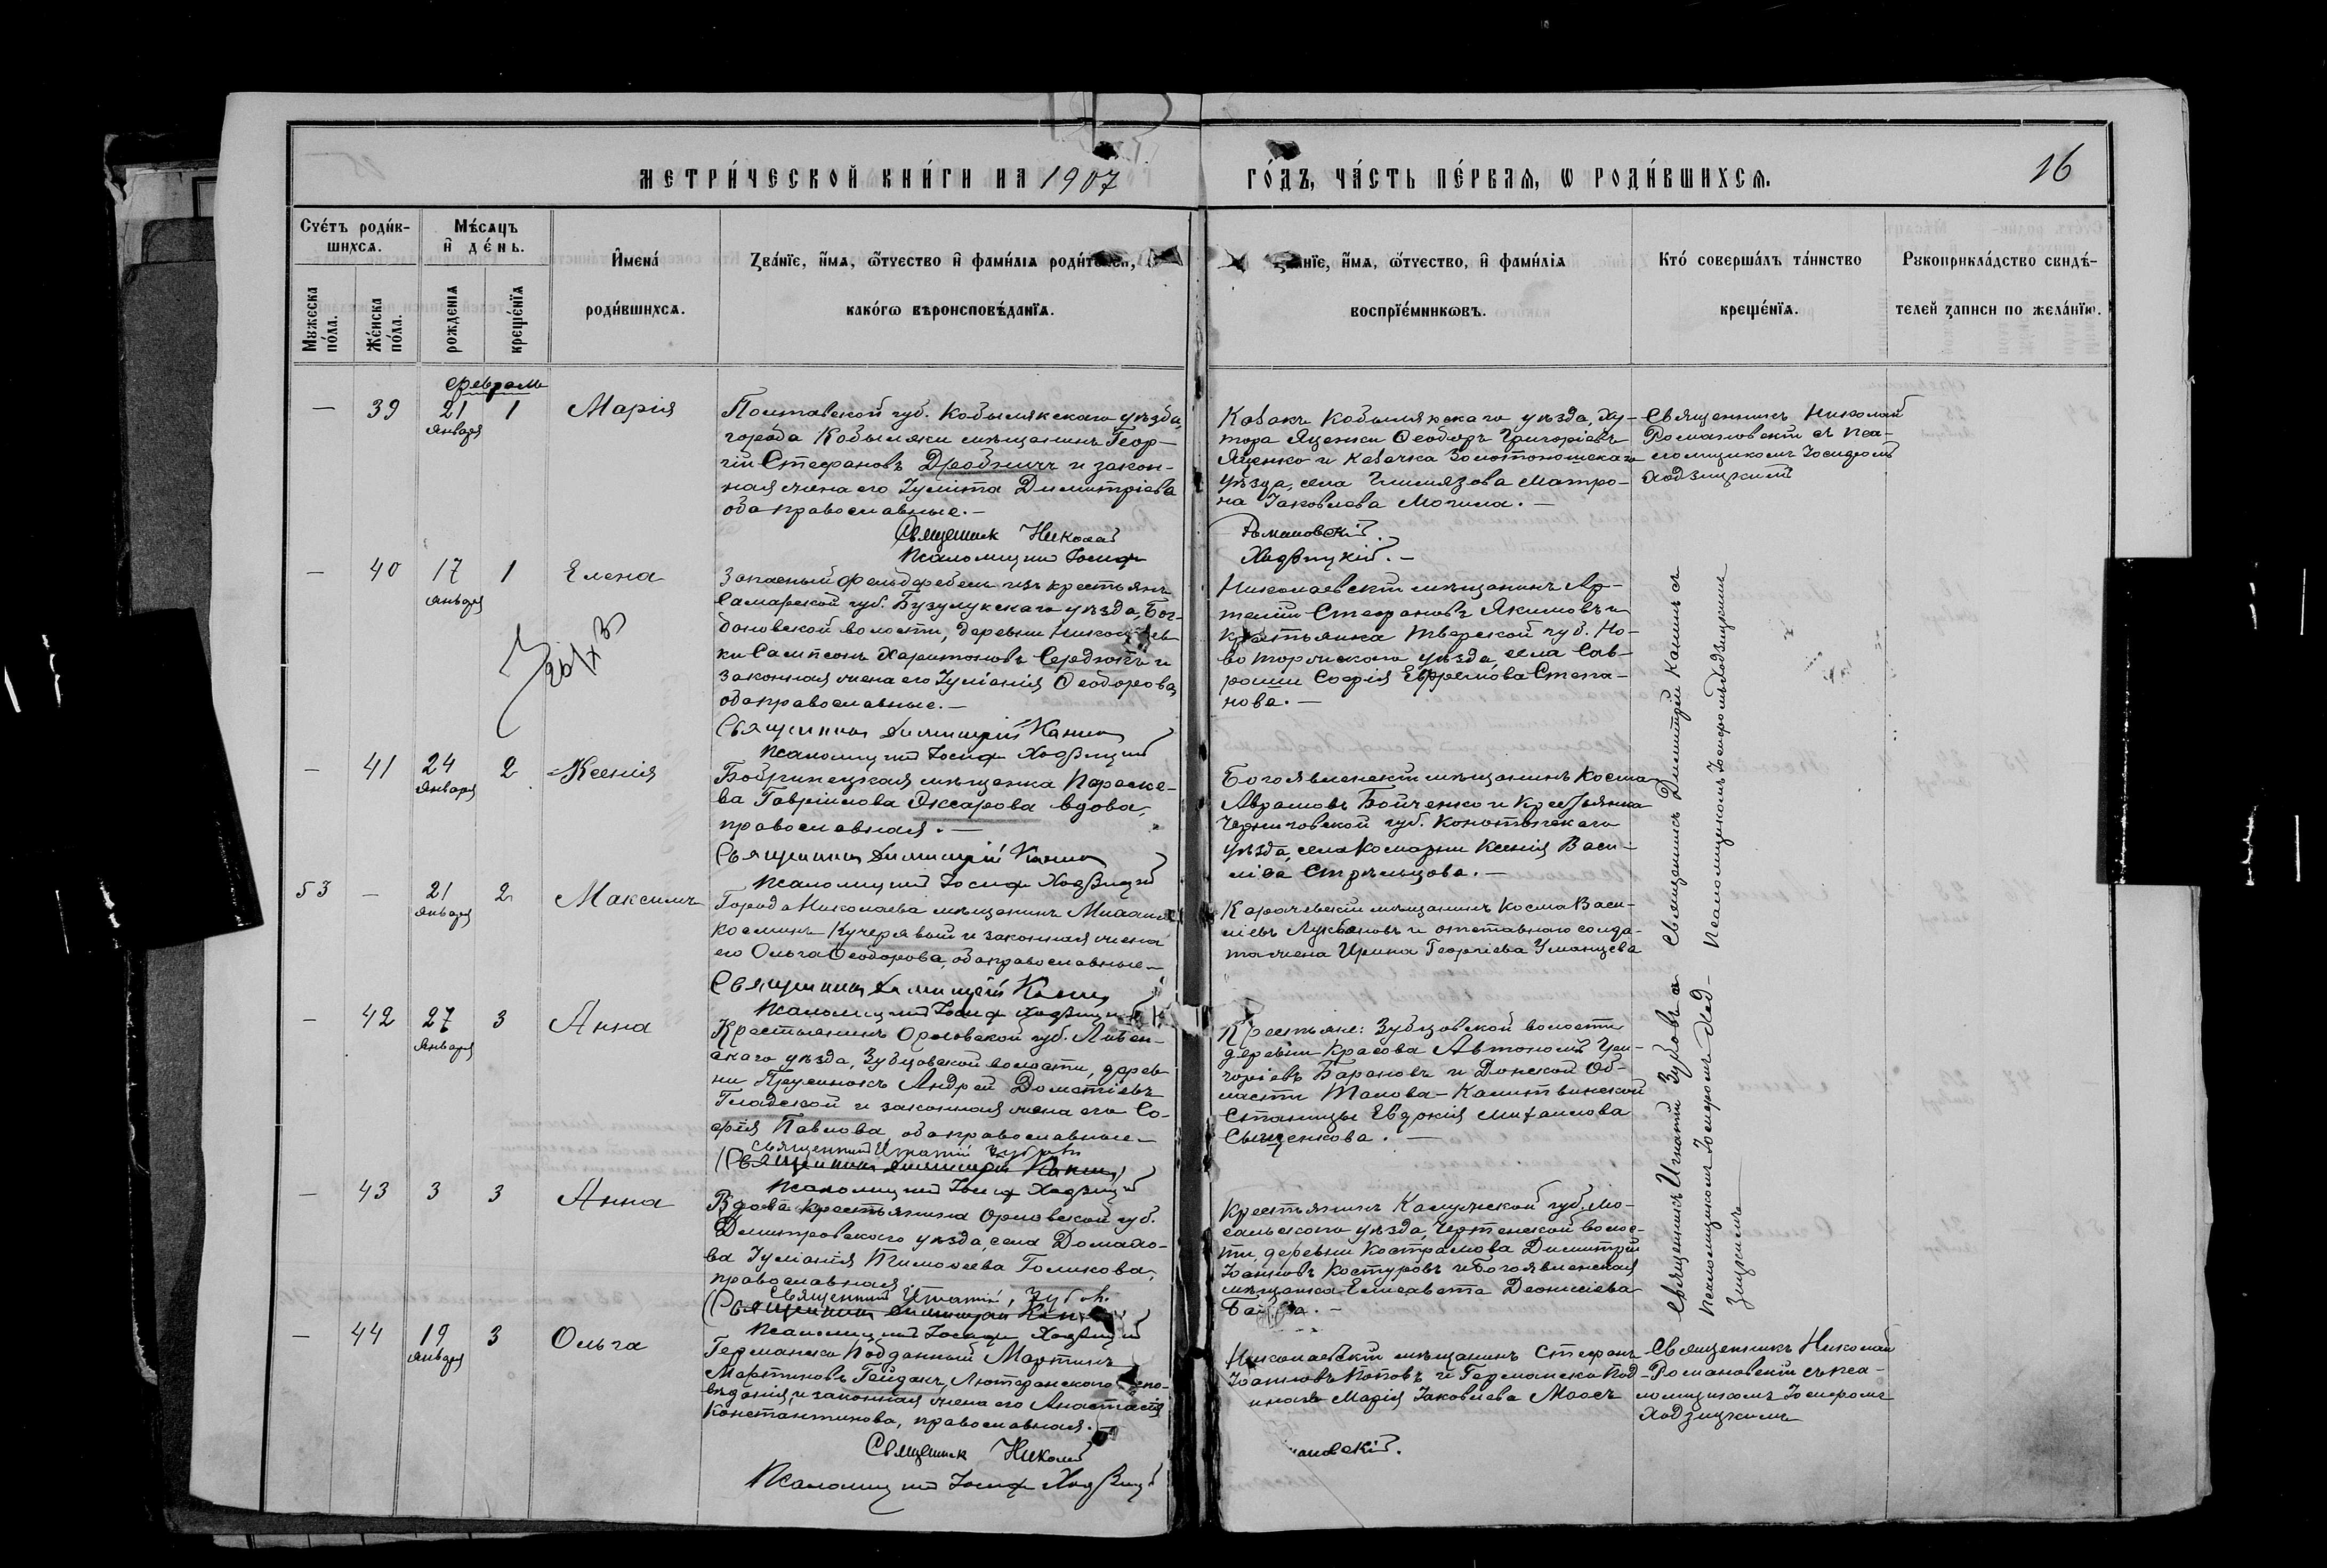 МЕТРИ́ЧЕСКОЙ КНИ́ГИ НА 1907
ГО́ДЪ, ЧА́СТЬ ПЕ́РВАЯ, Ѡ РОДИ́ВШИХСѦ.
16
Сче́тъ роди́в-
шихсѧ.
Мꙋжеска
по́ла.
Же́нска
по́ла.
Мѣ́сѧцъ
и҆ де́нь.
рожденїѧ
креще́нїѧ
И҆мена́
роди́вшихсѧ.
Зва́нїе, и҆́мѧ, ѻ҆́тчество и҆ фами́лїѧ роди́телей,
како́гѡ вѣроисповѣ́данїѧ.
Зва́нїе, и҆́мѧ, ѻ҆́тчество, и҆ фами́лїѧ
воспрїе́мникѡвъ.
Кто́ соверша́лъ та́инство
креще́нїѧ.
Рꙋкоприкла́дство свидѣ́-
телей записи по жела́нїю.
февраль
— 39 21 1 Марія
января
Полтавской губ. Кобылякскаго уѣзда,
города Кобыляки мѣщанинъ Геор-
гій Стефановъ Дробничъ и закон-
ная жена его Іулитта Димитріева
оба православные. —
Священник Николай
Псаломщик Іосиф
Козакъ Кобылякскаго уѣзда, ху-
тора Яценки Ѳеодоръ Григоріевъ
Яценко и козачка Золотоношскаго
уѣзда, села Гельмязова Матро-
на Іаковлева Могила. —
Романовскій.
Ходзицкій. —
Священникъ Николай
Романовскій съ пса-
ломщикомъ Іосифомъ
Ходзицкимъ
— 40 17 1 Елена
января
Запасный фельдфебель изъ крестьянъ
Самарской губ. Бузулукскаго уѣзда, Бог-
дановской волости, деревни Николаев-
ки Сампсонъ Харитоновъ Середюкъ и
законная жена его Іуліанія Ѳеодорова,
оба православные. —
Священник Димитрій Канин
Псаломщик Іосиф Ходзицкій
Николаевскій мѣщанинъ Ар-
темій Стефановъ Якимовъ и
крестьянка Тверской губ. Но-
воторжскаго уѣзда, села Сав-
роши Софія Ефремова Степа-
нова. —
Священникъ Димитрій Канинъ съ
псаломщикомъ Іосифомъ Ходзицкимъ
— 41 24 2 Ксенія
января
Бобринецкая мѣщанка Параске-
ва Гавріилова Яксарова вдова,
православная. —
Священник Димитрій Канин
Псаломщик Іосиф Ходзицкій
Богоявленскій мѣщанинъ Косма
Аврамовъ Бойченко и крестьянка
Черниговской губ. Конотопскаго
уѣзда, села Комарни Ксенія Васи-
ліева Стрѣльцова. —
53 — 21 2 Максимъ
января
Города Николаева мѣщанинъ Михаилъ
Косминъ Кучерявый и законная жена
его Ольга Ѳеодорова, оба православные —
Священник Димитрій Канин
Псаломщик Іосиф Ходзицкій
Карачевскій мѣщанинъ Косма Васи-
ліевъ Лукьяновъ и отставнаго солда-
та жена Ирина Георгіева Уманцева
— 42 27 3 Анна
января
Крестьянинъ Орловской губ. Ливен-
скаго уѣзда, Зубцовской волости, дерев-
ни Андрей Дометіевъ
Гладской и законная жена его Со-
фія Павлова оба православные —
Священник Игнатій Зубовъ
Священник Димитрій Канин
Псаломщик Іосиф Ходзицкій
Крестьяне: Зубцовской волости
деревни Красова Автономъ Гри-
горіевъ Барановъ и Донской Об-
ласти Калитвинской
Станицы Евдокія Михаилова
Сыщенкова. —
Священникъ Игнатій Зубовъ съ
псаломщикомъ Іосифомъ Ход-
зицкимъ
— 43 3 3 Анна
Вдова крестьянина Орловской губ.
Димитровскаго уѣзда, села Домахо-
ва Іуліанія Тимоѳеева Голикова,
православная.
Священник Игнатій Зубовъ
Священник Димитрій Канин
Псаломщик Іосиф Ходзицкій
Крестьянинъ Калужской губ. Мо-
сальскаго уѣзда, Чертенской волос-
ти, деревни Костромова Димитрій
Іоанновъ Костуровъ и Богоявленская
мѣщанка Елисавета Деонисіева
— 44 19 3 Ольга
января
Германско подданный Мартинъ
Мартиновъ Гейдакъ, Лютеранскаго испо-
вѣданія, и законная жена его Анастасія
Константинова, православная. —
Священник Николай
Псаломщик Іосиф Ходзицкій
Николаевскій мѣщанинъ Стефанъ
Іоанновъ Поповъ и Германско под-
Марія Іаковлева Маасъ
мановскій.
Священникъ Николай
Романовскій съ пса-
ломщикомъ Іосифомъ
Ходзицкимъ